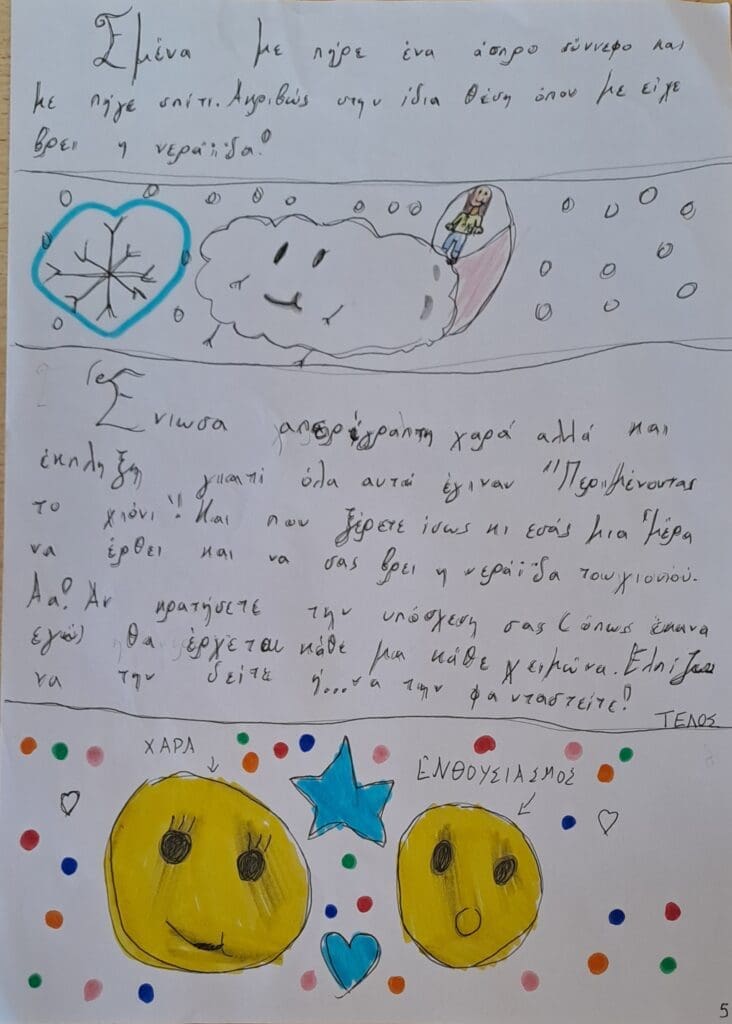 Εμένα με πήρε ένα άσπρο σύννεφο και
με πήγε σπίτι. Ακριβώς στην ίδια θέση όπου με είχε
βρει η νεράιδα!
Ένιωσα απερίγραπτη χαρά αλλά και
έκπληξη γιατί όλα αυτά έγιναν "Περιμένοντας
το χιόνι"! Και που ξέρετε ίσως κι εσάς μια μέρα
να έρθει και να σας βρει η νεράιδα του χιονιού.
Αα! Αν κρατήσετε την υπόσχεση σας (όπως έκανα
εγώ) θα έρχεται κάθε μα κάθε χειμώνα. Ελπίζω
να την δείτε ή...να την φανταστείτε!
ΤΕΛΟΣ
ΧΑΡΑ
ΕΝΘΟΥΣΙΑΣΜΟΣ
5